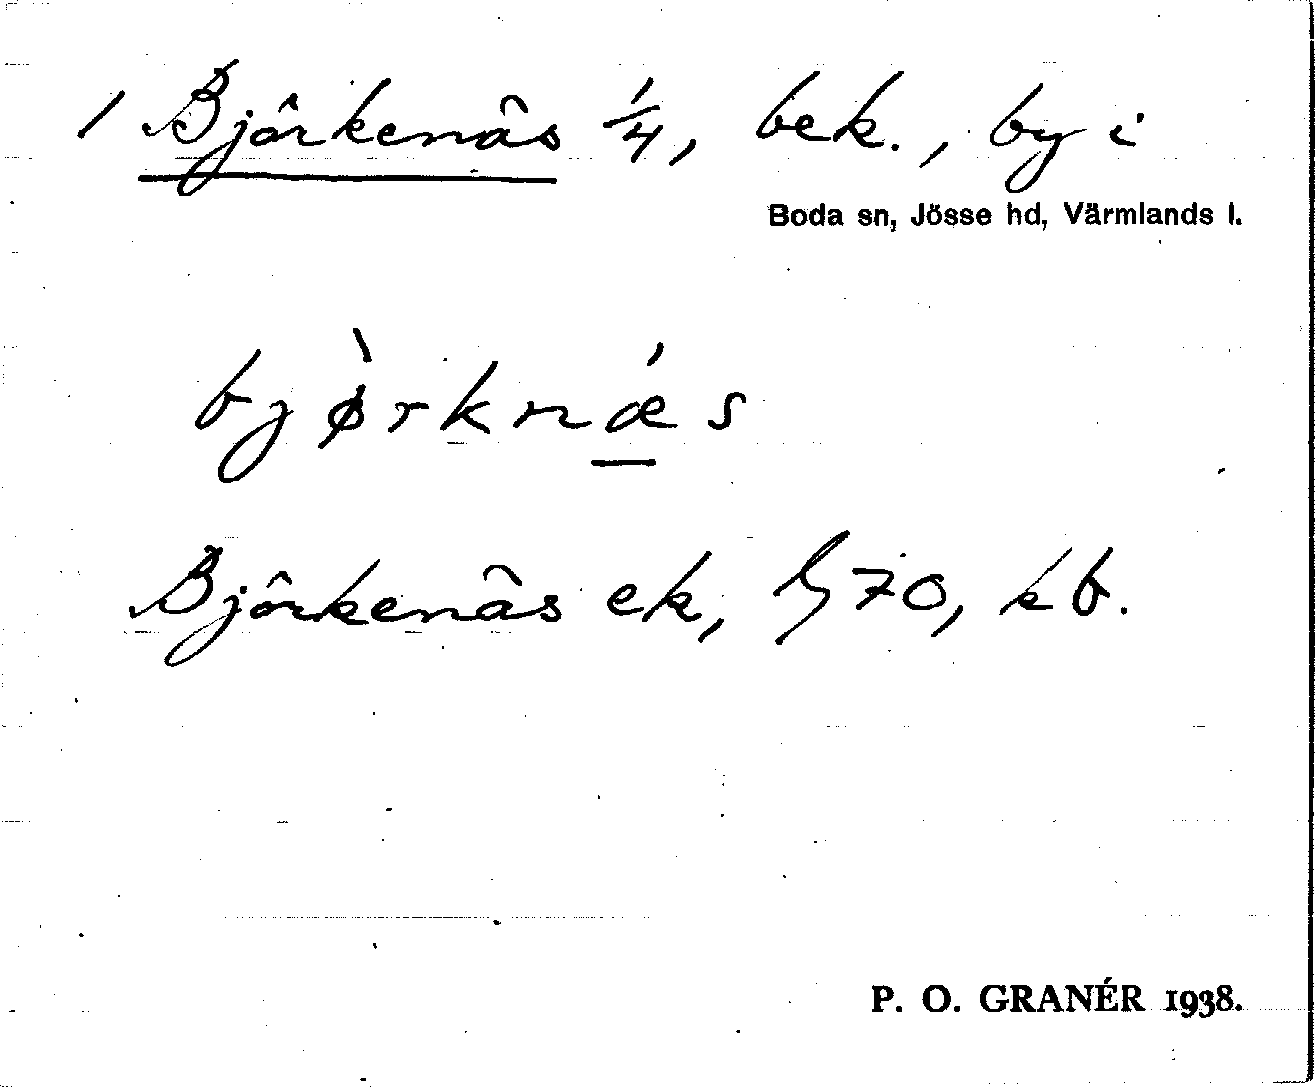 1 Björkenäs 1/4, bek., by i
Boda sn, Jösse hd, Värmlands l.
bjø̀rknǽs
Björkenäs ek, 70, kb.
P. O. GRANÉR 1938.